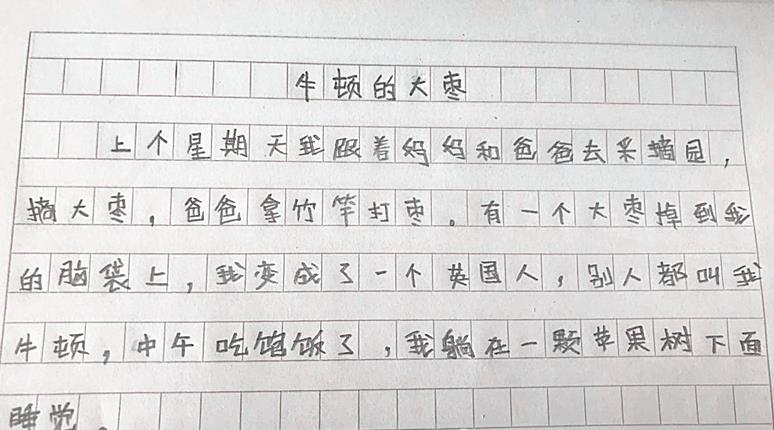 牛顿的大枣
上个星期天我跟着妈妈和爸爸去采摘园，
摘大枣，爸爸拿竹竿打枣。有一个大枣掉到我
的脑袋上，我变成了一个英国人，别人都叫我
牛顿，中午吃馅饭了，我躺在一颗苹果树下面
睡觉。